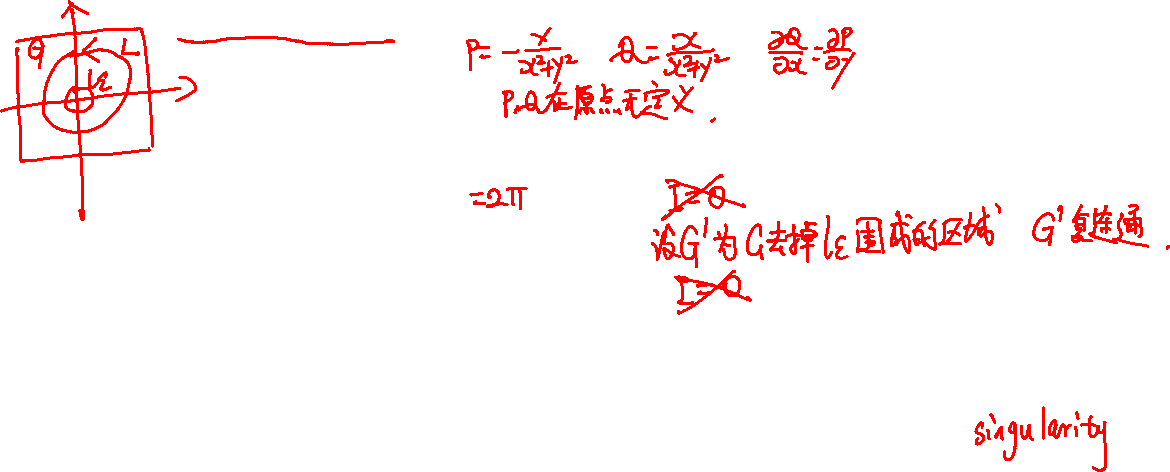 G L lε
P = -x/(x²+y²) Q = x/(x²+y²) ∂Q/∂x = ∂P/∂y
P,Q在原点无定义.
=2π I=0
设G'为G去掉lε围成的区域 G'复连通.
I=0
singularity